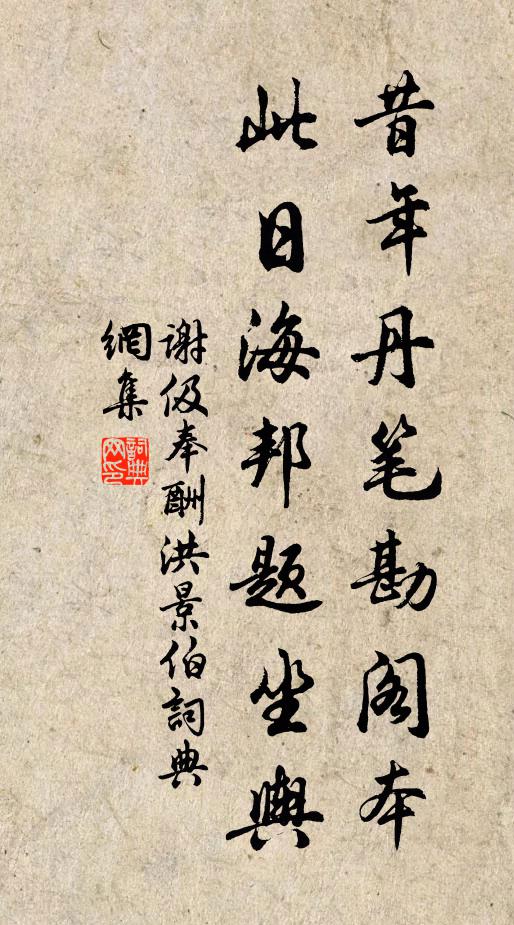 昔年丹笔勘阁本
此日海邦题坐舆
谢伋奉酬洪景伯詞典
網集
詞典
网印